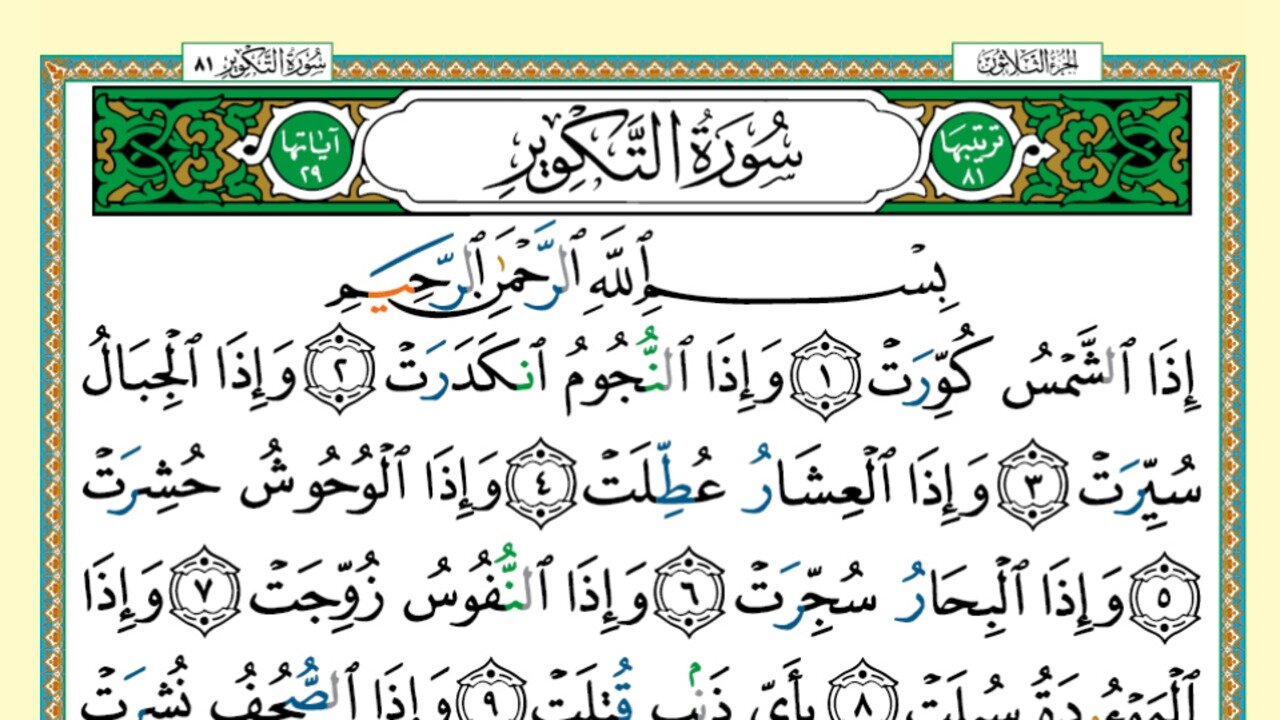 الجزء الثلاثون
سورة التكوير ٨١
ترتيبها ٨١
سُورَةُ التَّكْوِيرِ
آياتها ٢٩
بِسْمِ ٱللَّهِ ٱلرَّحْمَٰنِ ٱلرَّحِيمِ
إِذَا ٱلشَّمْسُ كُوِّرَتْ ١ وَإِذَا ٱلنُّجُومُ ٱنكَدَرَتْ ٢ وَإِذَا ٱلْجِبَالُ
سُيِّرَتْ ٣ وَإِذَا ٱلْعِشَارُ عُطِّلَتْ ٤ وَإِذَا ٱلْوُحُوشُ حُشِرَتْ
٥ وَإِذَا ٱلْبِحَارُ سُجِّرَتْ ٦ وَإِذَا ٱلنُّفُوسُ زُوِّجَتْ ٧ وَإِذَا
ٱلْمَوْءُۥدَةُ سُئِلَتْ ٨ بِأَىِّ ذَنۢبٍ قُتِلَتْ ٩ وَإِذَا ٱلصُّحُفُ نُشِرَتْ